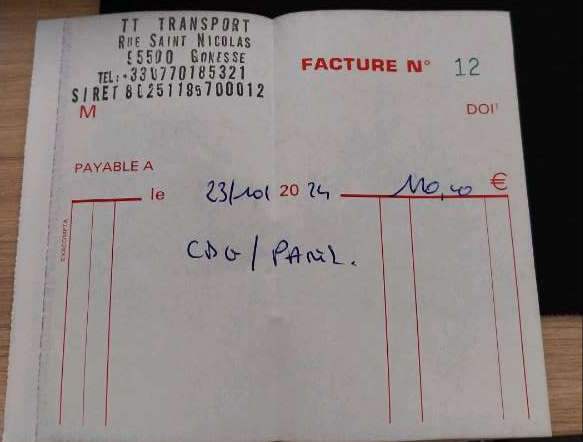 TT TRANSPORT
RUE SAINT NICOLAS
95500 GONESSE
TEL:+330770185321
SIRET 80251185700012
FACTURE N° 12
M
DOIT
PAYABLE A
le 23/10/ 20 24 110,40 €
EXACOMPTA
CDG/PARIS.